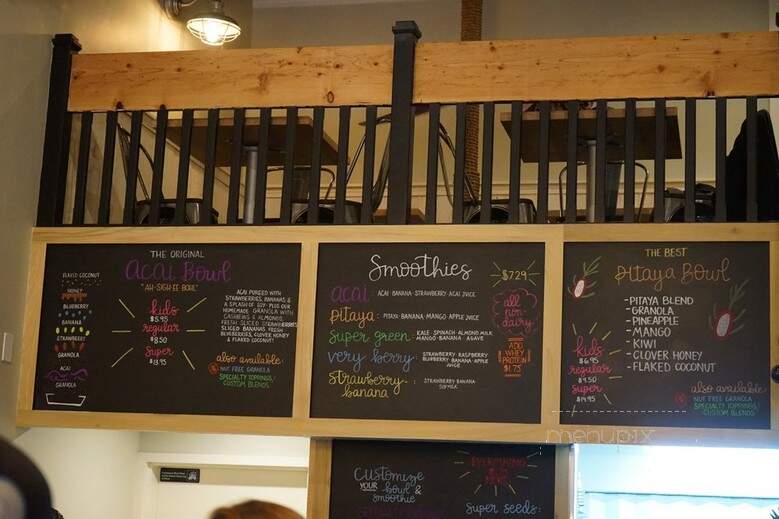 THE ORIGINAL
acai Bowl
"AH-SIGH-EE BOWL"
FLAKED COCONUT
HONEY
BLUEBERRY
BANANA
STRAWBERRY
GRANOLA
ACAI
GRANOLA
kids
$5.95
regular
$8.50
super
$13.95
ACAI PUREED WITH
STRAWBERRIES, BANANAS &
A SPLASH OF SOY. PLUS OUR
HOMEMADE GRANOLA WITH
CASHEWS & ALMONDS,
FRESH SLICED STRAWBERRIES
SLICED BANANAS, FRESH
BLUEBERRIES, CLOVER HONEY
& FLAKED COCONUT!
also available:
NUT FREE GRANOLA
SPECIALTY TOPPINGS/
CUSTOM BLENDS
Smoothies
$7.29
acai: ACAI-BANANA-STRAWBERRY ACAI JUICE
pitaya: PITAYA-BANANA-MANGO APPLE JUICE
super green: KALE-SPINACH-ALMOND MILK
MANGO-BANANA-AGAVE
very berry: STRAWBERRY-RASPBERRY
BLUEBERRY-BANANA-APPLE
JUICE
strawberry-
banana: STRAWBERRY-BANANA
SOYMILK
all
non
dairy
ADD
WHEY
PROTEIN
$1.75
THE BEST
pitaya Bowl
- PITAYA BLEND
- GRANOLA
- PINEAPPLE
- MANGO
- KIWI
- CLOVER HONEY
- FLAKED COCONUT
kids
$6.95
regular
$9.50
super
$14.95
also available
NUT FREE GRANOLA
SPECIALTY TOPPINGS/
CUSTOM BLENDS
menupix
Customize
YOUR bowl &
smoothie
super seeds: